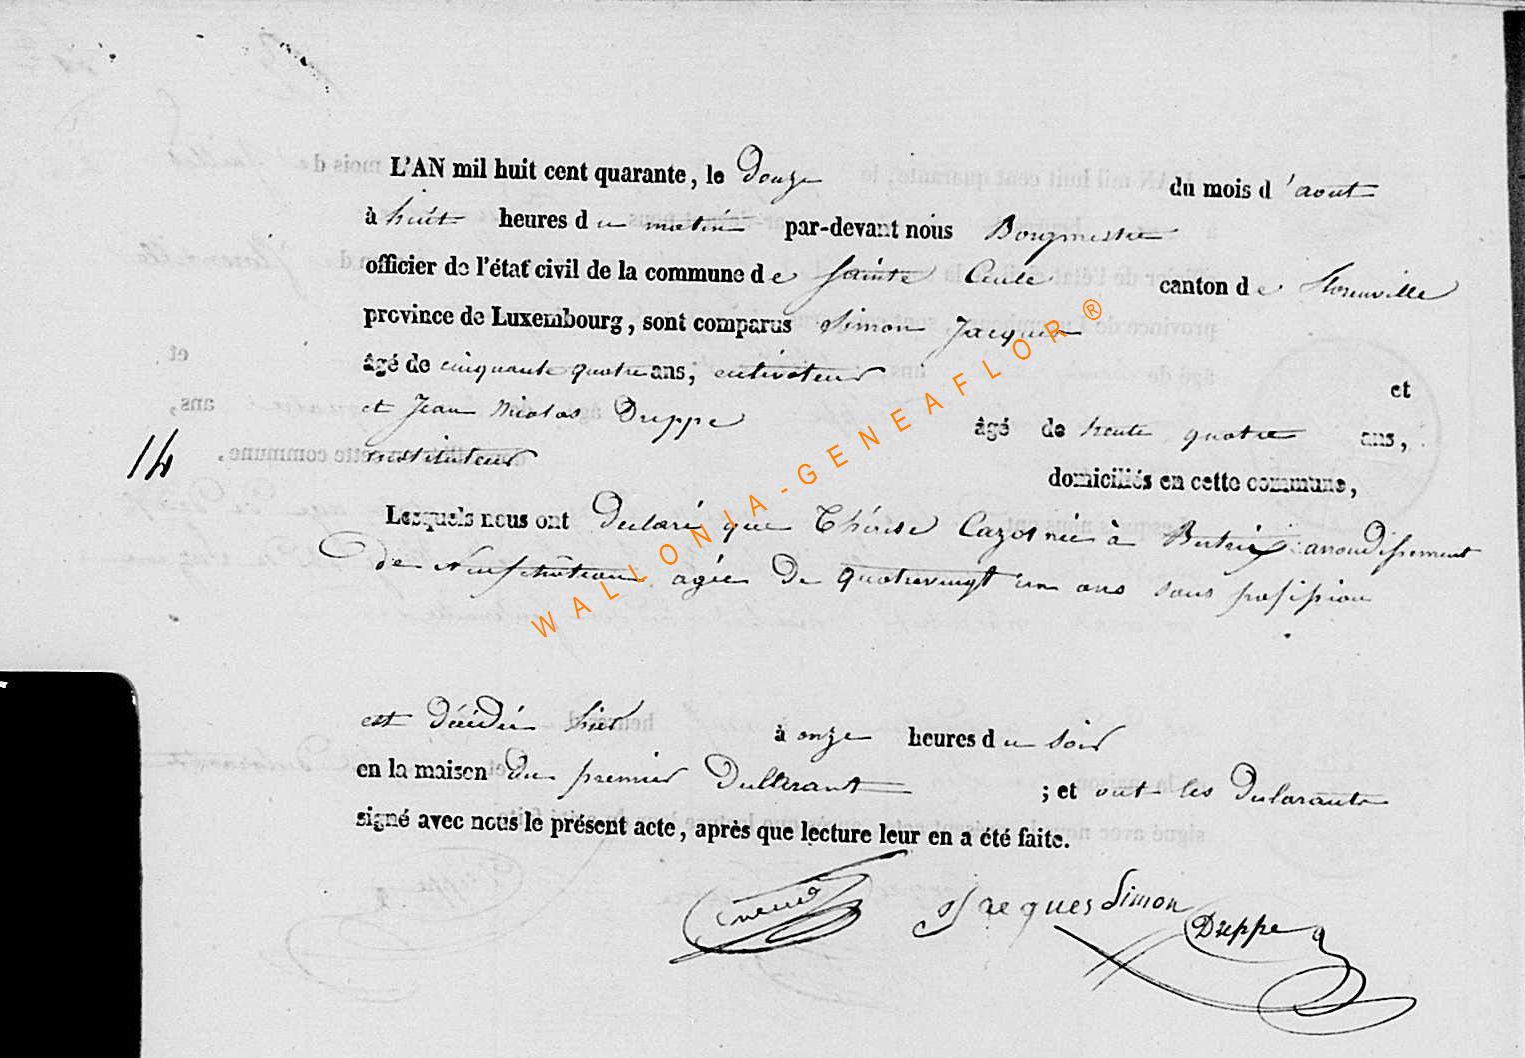 L'AN mil huit cent quarante, le Douze du mois d'aout
à huit heures du matin par-devant nous Bourgmestre
officier de l'état civil de la commune de Sainte Cecile canton de Florenville
province de Luxembourg, sont comparus Simon Jacques
âgé de cinquante quatre ans, cultivateur et
et Jean Nicolas Dreppe âgé de trente quatre ans,
14
instituteur domiciliés en cette commune,
Lesquels nous ont Déclaré que Thérèse Cazot née à Bertrix arrondissement
de Neufchâteau agée De quatrevingt un ans sans profession
est décédée hier à onze heures du soir
en la maison du premier Déclarant ; et ont les Déclarants
signé avec nous le présent acte, après que lecture leur en a été faite.
Jacques Simon Dreppe
WALLONIA-GENEAFLOR®